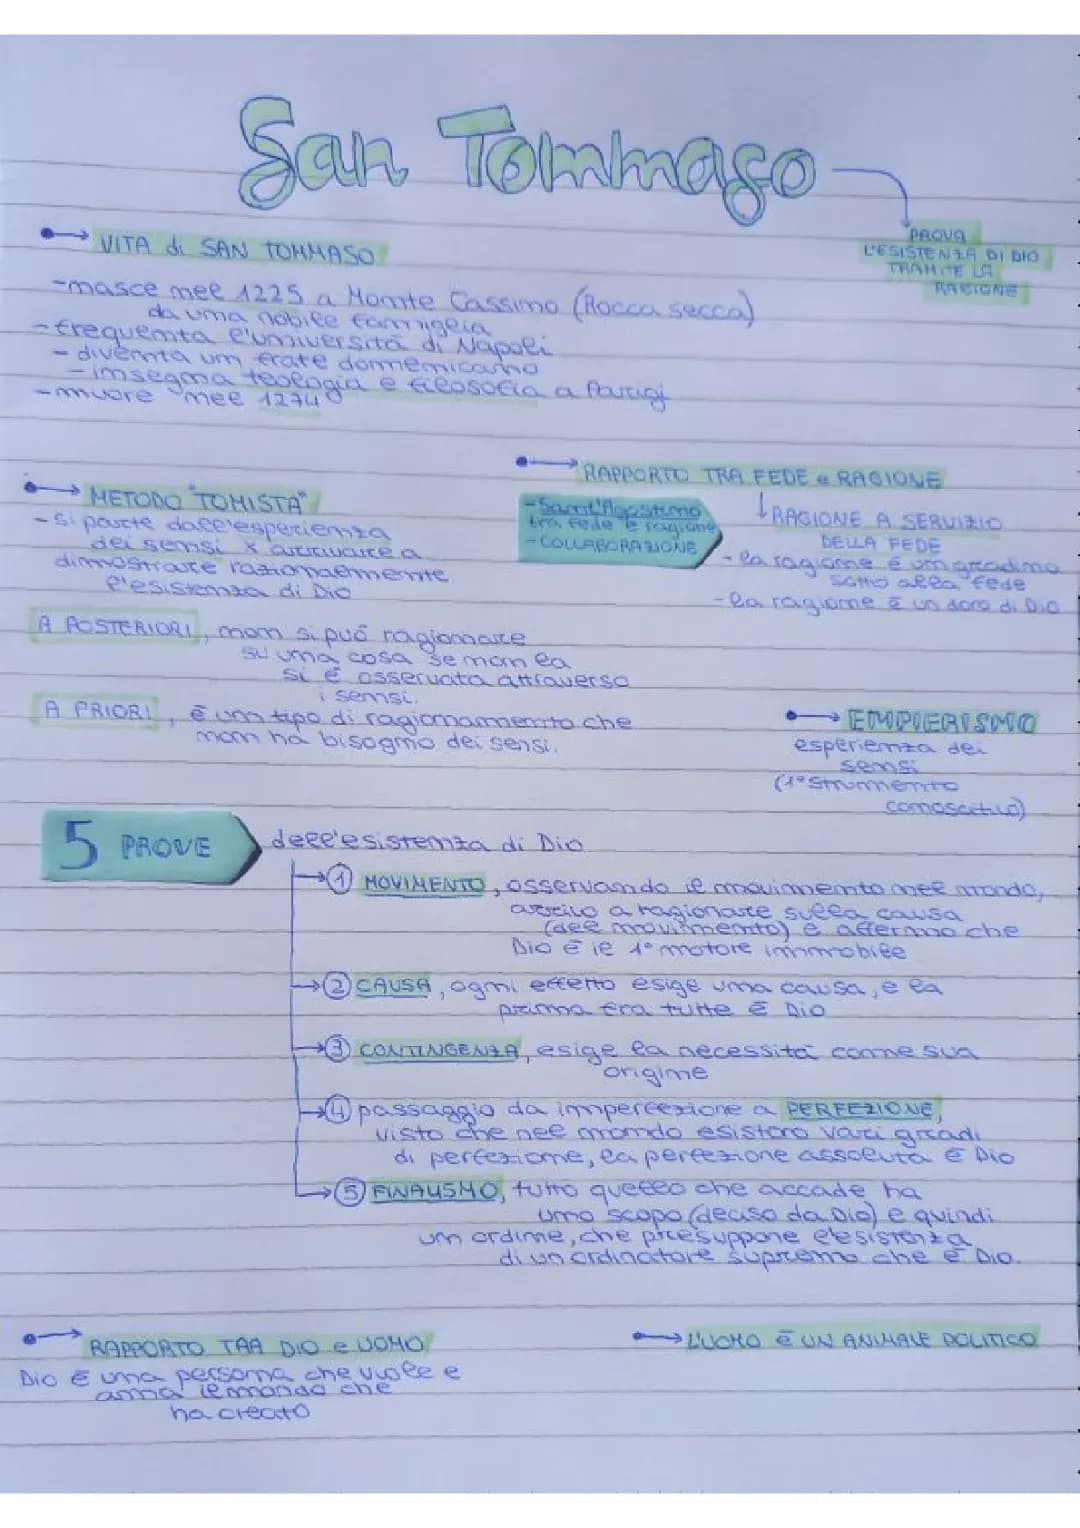 San Tommaso
PROVA
L'ESISTENZA DI DIO
TRAMITE LA
RAGIONE
VITA di SAN TOMMASO
-nasce nel 1225 a Monte Cassino (Rocca secca)
da una nobile famiglia
-frequenta l'università di Napoli
-diventa un frate domenicano
-insegna teologia e filosofia a Parigi
-muore nel 1274
METODO "TOMISTA"
-si parte dall'esperienza
dei sensi x arrivare a
dimostrare razionalmente
l'esistenza di Dio
RAPPORTO TRA FEDE e RAGIONE
-Sant'Agostino
tra fede e ragione
-COLLABORAZIONE
RAGIONE A SERVIZIO
DELLA FEDE
-la ragione è un gradino
sotto alla fede
-la ragione è un dono di Dio
A POSTERIORI, non si può ragionare
su una cosa se non la
si è osservata attraverso
i sensi.
A PRIORI, è un tipo di ragionamento che
non ha bisogno dei sensi.
EMPIERISMO
esperienza dei
sensi
(1° strumento
conoscitivo)
5 PROVE dell'esistenza di Dio
1 MOVIMENTO, osservando il movimento nel mondo,
arrivo a ragionare sulla causa
(del movimento) e affermo che
Dio è il 1° motore immobile
2 CAUSA, ogni effetto esige una causa, e la
prima fra tutte è Dio
3 CONTINGENZA, esige la necessità come sua
origine
4 passaggio da imperfezione a PERFEZIONE,
visto che nel mondo esistono vari gradi
di perfezione, la perfezione assoluta è Dio
5 FINALISMO, tutto quello che accade ha
uno scopo (deciso da Dio) e quindi
un ordine, che presuppone l'esistenza
di un ordinatore supremo che è Dio.
RAPPORTO TRA DIO e UOMO
Dio è una persona che vuole e
ama il mondo che
ha creato
L'UOMO È UN ANIMALE POLITICO